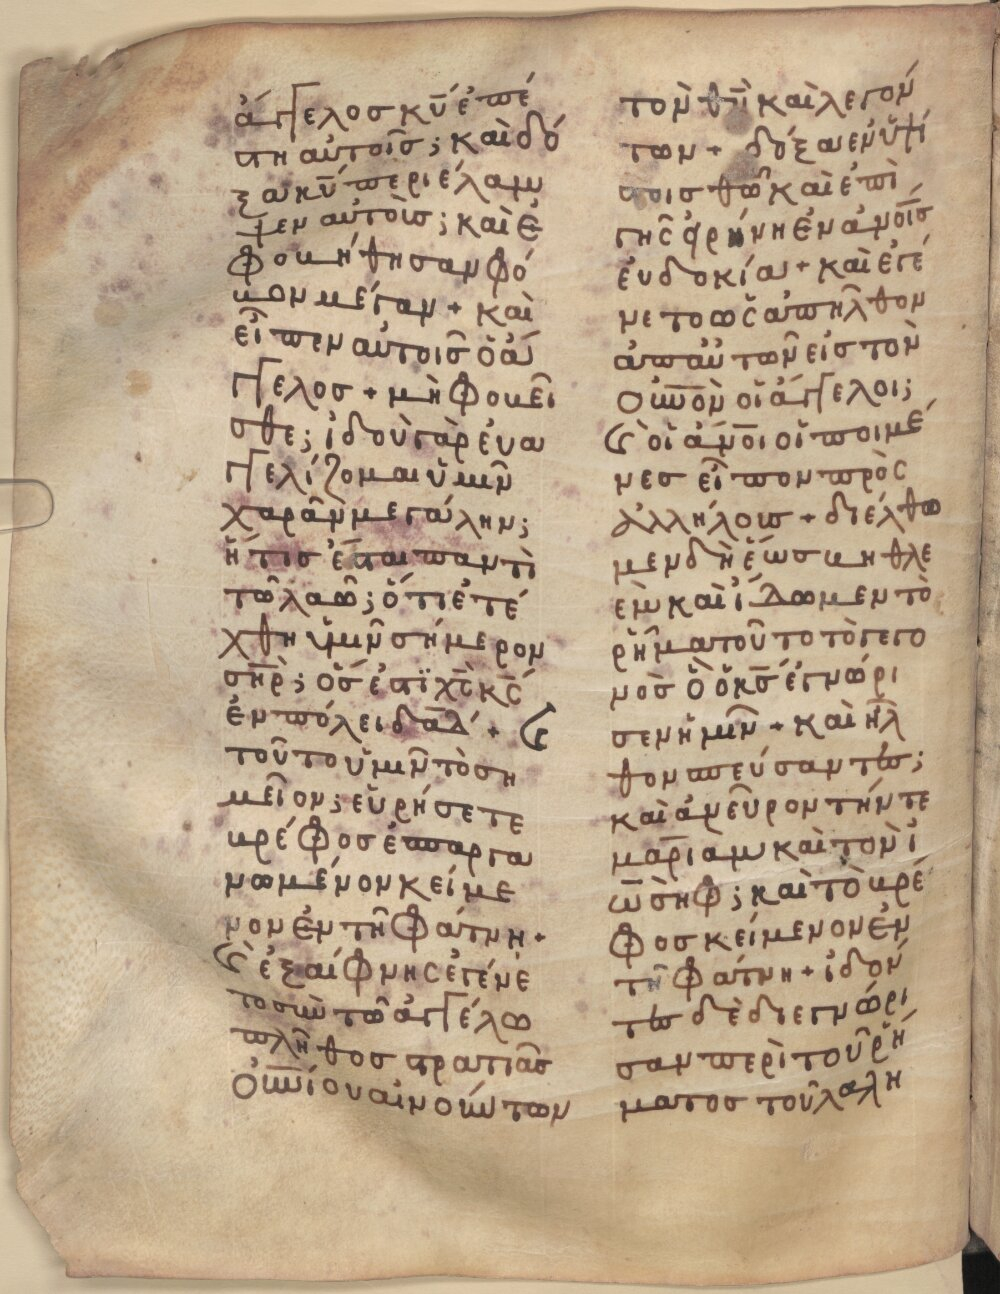 ἄγγελος κ̅υ̅ ἐπέ
στη αὐτοῖς; καὶ δό
ξα κ̅υ̅ περιέλαμ
ψεν αὐτοὶς; καὶ ἐ
φοβήθησαν φό
βον μέγαν + καὶ
εἶπεν αὐτοῖς ὁ ἄγ
γελος + μὴ φοβεῖ
σθε; ἰδοὺ γὰρ ἐυα
γγελίζομαι ὑμῖν
χαρὰν μεγάλην;
ἥτις ἔσται παντὶ
τῶ λαῶ; ὅτι ἐτέ
χθη ὑμῖν σήμερον
σ̅η̅ρ̅; ὅς ἐστϊ χ̅ς̅ κ̅ς̅
ἐν πόλει δ̅α̅δ̅ + ϛ
τοῦτο ὑμῖν τὸ ση
μεῖον; εὑρήσετε
βρέφος ἐσπαργα
νωμένον κείμε
νον ἐν τῆ φάτνη +
ϛ ἐξαίφνης ἐγένε
το σὺν τῶ ἀγγέλω
πλῆθος στρατιᾶς
ο̅υ̅νίου αἰνούντων
τὸν θ̅ν̅ καὶ λεγόν
των + δόξα ἐν ὑψί
στοις θ̅ω̅ καὶ ἐπὶ
γῆς εἰρήνη ἐν α̅ν̅οῖς
ἐυδοκία + καὶ ἐγέ
νετο ὡς ἀπῆλθον
ἀπ αὐτῶν εἰς τὸν
ο̅υ̅νὸν οἱ ἄγγελοι;
ϛ οἱ α̅ν̅οι οἱ ποιμέ
νες εἶπον πρὸς
ἀλλήλοις + διέλθω
μεν δὴ ἕως βηθλε
ὲμ καὶ ἴδωμεν τὸ
ῥῆμα τοῦτο τὸ γεγο
νὸς ὃ ὁ κ̅ς̅ ἐγνώρι
σεν ἡμῖν + καὶ ἦλ
θον σπεύσαντες;
καὶ ἀνεῦρον τήν τε
μαριὰμ καὶ τὸν ἰ
ωσὴφ; καὶ τὸ βρέ
φος κείμενον ἐν
τῆ φάτνη + ἰδόν
τες δὲ διεγνώρι
σαν περὶ τοῦ ῥή
ματος τοῦ λαλη